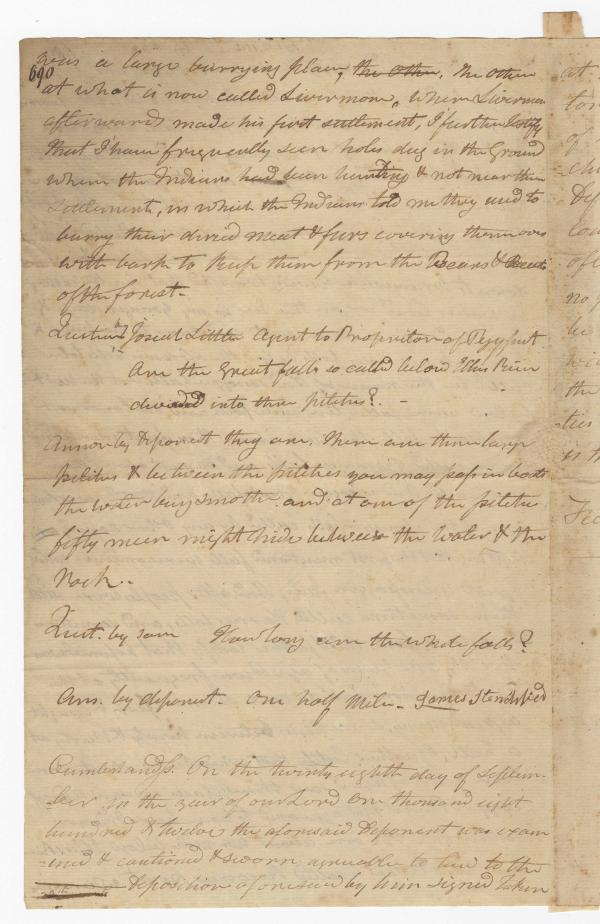 690
was a large burrying place, the other, the other
at what is now called Livermore, where Livermore
afterwards made his first settlement, I further testify
that I have frequently seen holes dug in the Ground
where the Indians had been hunting & not near their
settlements, in which the Indians told me they used to
burry their dried meat & furs covering them over
with bark to keep them from the Bears &
of the forest.
Question Josiah Little Agent to Proprietors of Pejepscut
Are the Great falls so called below Ellis River
divided into three pitches? -
Answer by deponent they are, there are three large
pitches & between the pitches you may pass in boats
the water being smothe and at one of the pitches
fifty meen might hide between the water & the
Rock..
Quest. by same How long are the whole falls?
Ans. by deponent. One half Mile. James
Cumberland Ss. On the twenty eighth day of Septem-
-ber in the year of our Lord One thousand eight
hundred & twelve the aforesaid Deponent was exam
-ined & cautioned & sworn agreeable to law to the
deposition aforesaid by him signed Taken